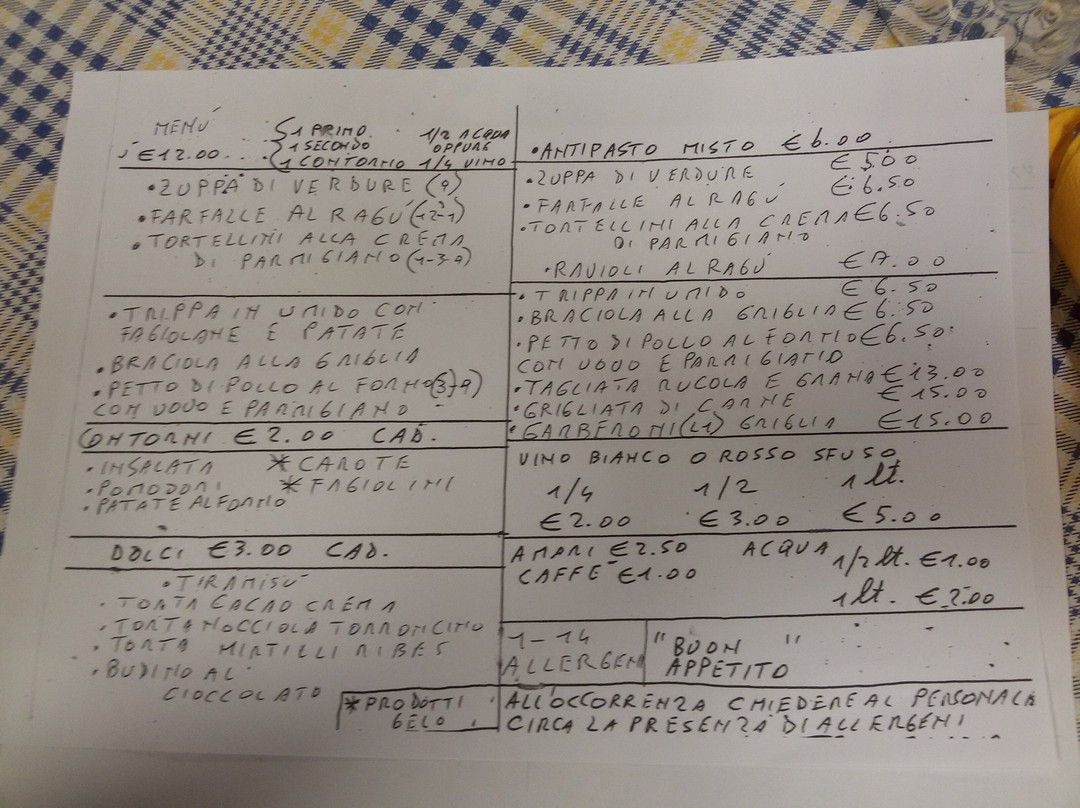 MENÚ
€12.00... 1 PRIMO 1/2 ACQUA
1 SECONDO OPPURE
1 CONTORNO 1/4 VINO
•ZUPPA DI VERDURE (9)
•FARFALLE AL RAGÚ
•TORTELLINI ALLA CREMA
DI PARMIGIANO
•TRIPPA IN UMIDO CON
FAGIOLANE E PATATE
•BRACIOLA ALLA GRIGLIA
•PETTO DI POLLO AL FORNO
CON UOVO E PARMIGIANO
CONTORNI €2.00 CAD.
•INSALATA *CAROTE
•POMODORI *FAGIOLINI
•PATATE AL FORNO
DOLCI €3.00 CAD.
•TIRAMISÚ
•TORTA CACAO CREMA
•TORTA NOCCIOLA TORRONCINO
•TORTA MIRTILLI RIBES
•BUDINO AL
CIOCCOLATO
*PRODOTTI
GELO
•ANTIPASTO MISTO €6.00
•ZUPPA DI VERDURE €5.00
•FARFALLE AL RAGÚ €6.50
•TORTELLINI ALLA CREMA €6.50
DI PARMIGIANO
•RAVIOLI AL RAGÚ €7.00
•TRIPPA IN UMIDO €6.50
•BRACIOLA ALLA GRIGLIA €6.50
•PETTO DI POLLO AL FORNO €6.50
CON UOVO E PARMIGIANO
•TAGLIATA RUCOLA E GRANA €13.00
•GRIGLIATA DI CARNE €15.00
•GAMBERONI(L1) GRIGLIA €15.00
VINO BIANCO O ROSSO SFUSO
1/4 1/2 1 lt.
€2.00 €3.00 €5.00
AMARI €2.50 ACQUA 1/2 lt. €1.00
CAFFÈ €1.00 1 lt. €2.00
1-14
ALLERGENI
"BUON "
APPETITO
ALL'OCCORRENZA CHIEDERE AL PERSONALE
CIRCA LA PRESENZA DI ALLERGENI